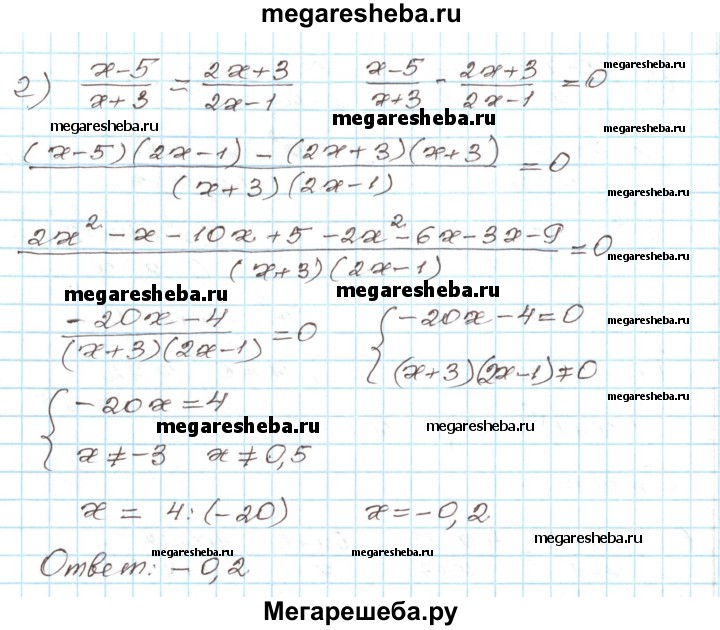 megaresheba.ru
2) (x-5)/(x+3) = (2x+3)/(2x-1)   (x-5)/(x+3) - (2x+3)/(2x-1) = 0
megaresheba.ru
megaresheba.ru
megaresheba.ru
megaresheba.ru
((x-5)(2x-1) - (2x+3)(x+3))/((x+3)(2x-1)) = 0
megaresheba.ru
(2x² - x - 10x + 5 - 2x² - 6x - 3x - 9)/((x+3)(2x-1)) = 0
megaresheba.ru
megaresheba.ru megaresheba.ru
(-20x-4)/((x+3)(2x-1)) = 0   { -20x-4=0
megaresheba.ru
(x+3)(2x-1)≠0
{ -20x=4
megaresheba.ru
megaresheba.ru megaresheba.ru
x≠-3   x≠0,5
x = 4:(-20)   x=-0,2
megaresheba.ru
megaresheba.ru megaresheba.ru
Ответ: -0,2
Мегарешеба.ру